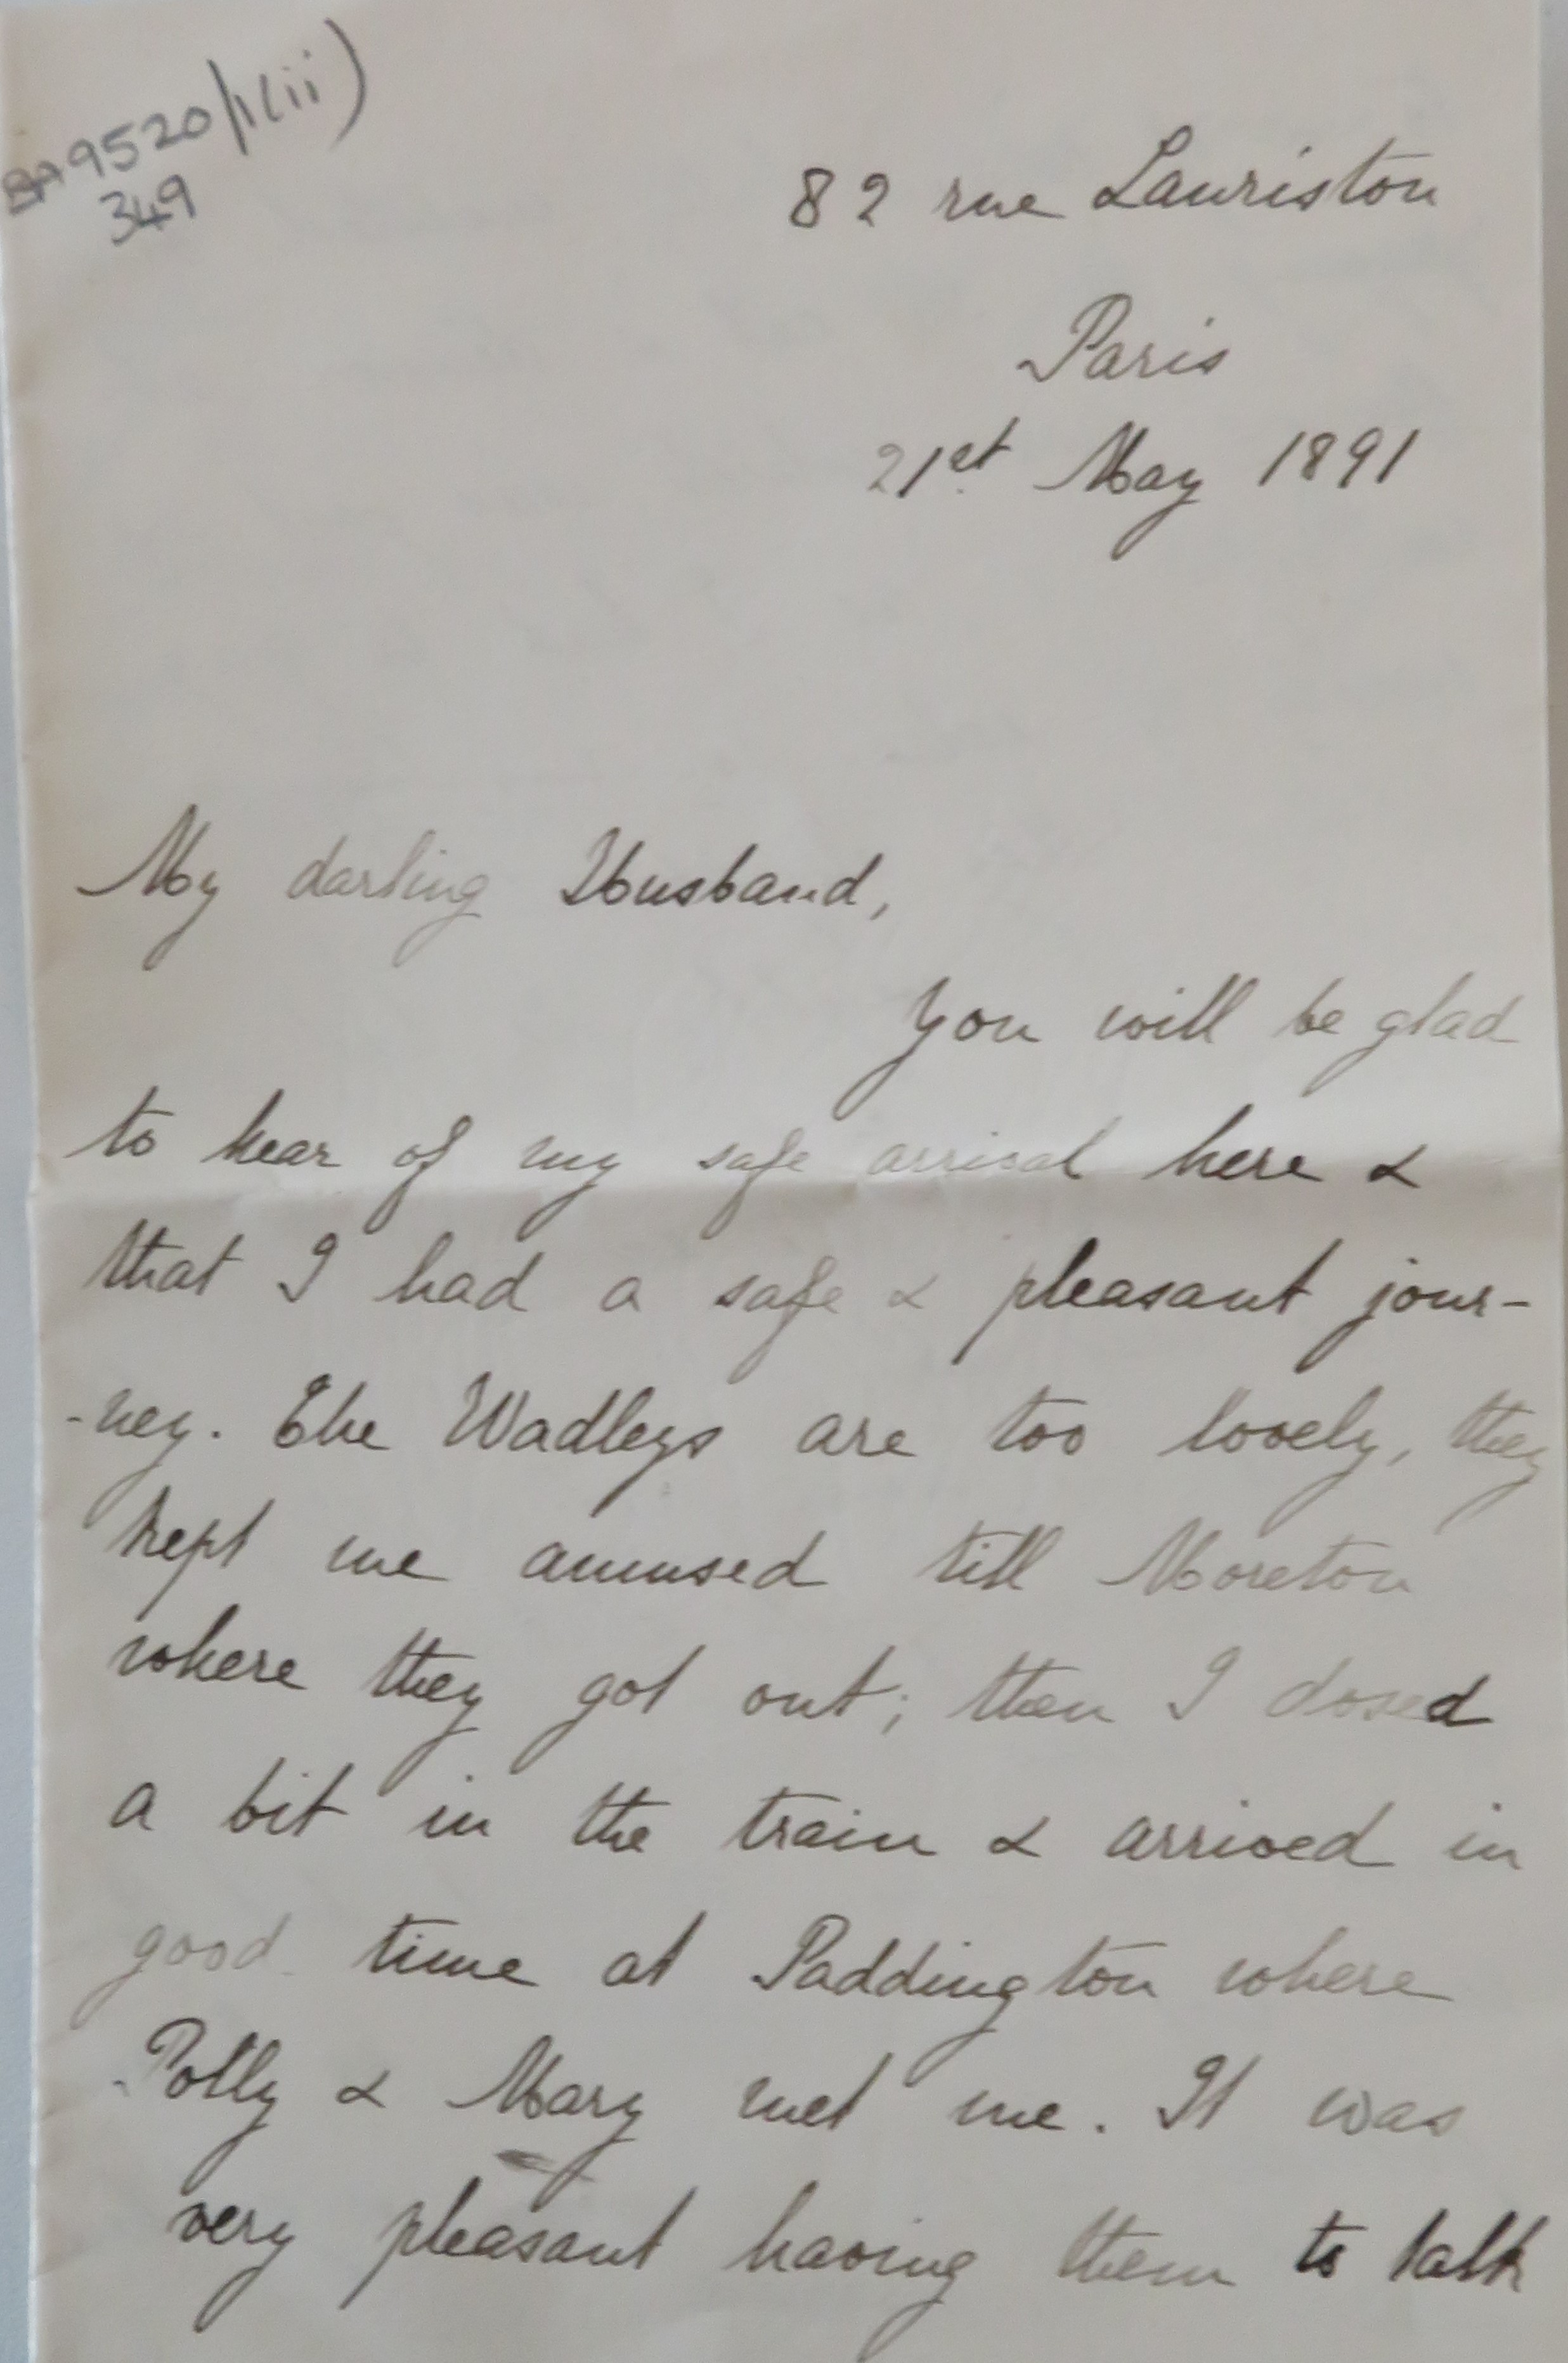 BA9520/1(ii)
349
82 rue Lauriston
Paris
21st May 1891
My darling Husband,
You will be glad
to hear of my safe arrival here &
that I had a safe & pleasant jour-
-ney. The Wadleys are too lovely, they
kept me amused till Moreton
where they got out; then I dosed
a bit in the train & arrived in
good time at Paddington where
Polly & Mary met me. It was
very pleasant having them to talk